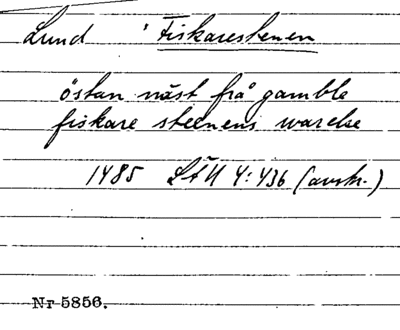 Lund Fiskarestenen
östan näst från gamble
fiskare steenens warelse
1485 LÄU 4:436 (avskr.)
Nr 5856.